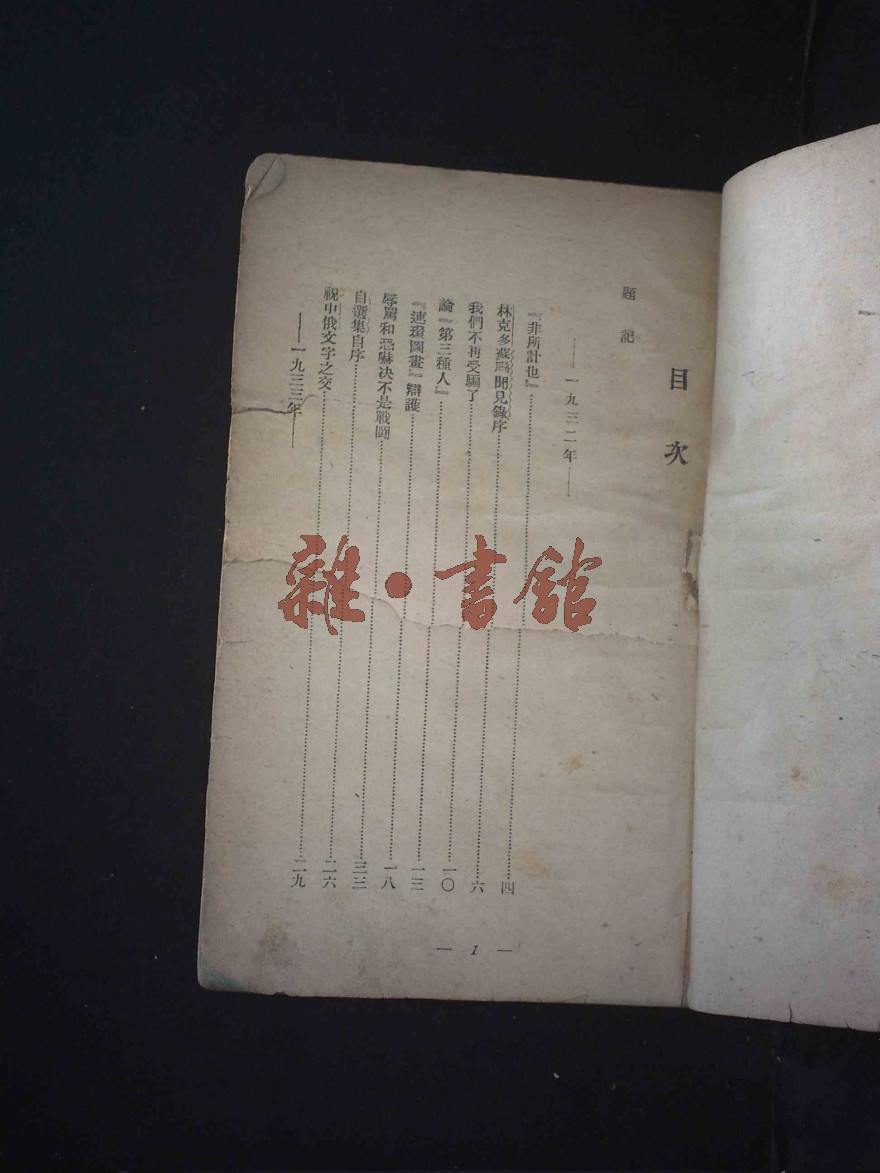 目次
題記
——一九三二年——
『非所計也』……四
林克多蘇聯聞見錄序……六
我們不再受騙了……一〇
論『第三種人』……一三
『連環圖畫』辯護……一八
辱罵和恐嚇決不是戰鬪……三三
自選集自序……二六
祝中俄文字之交……二九
——一九三三年——
— 1 —
雜·書館